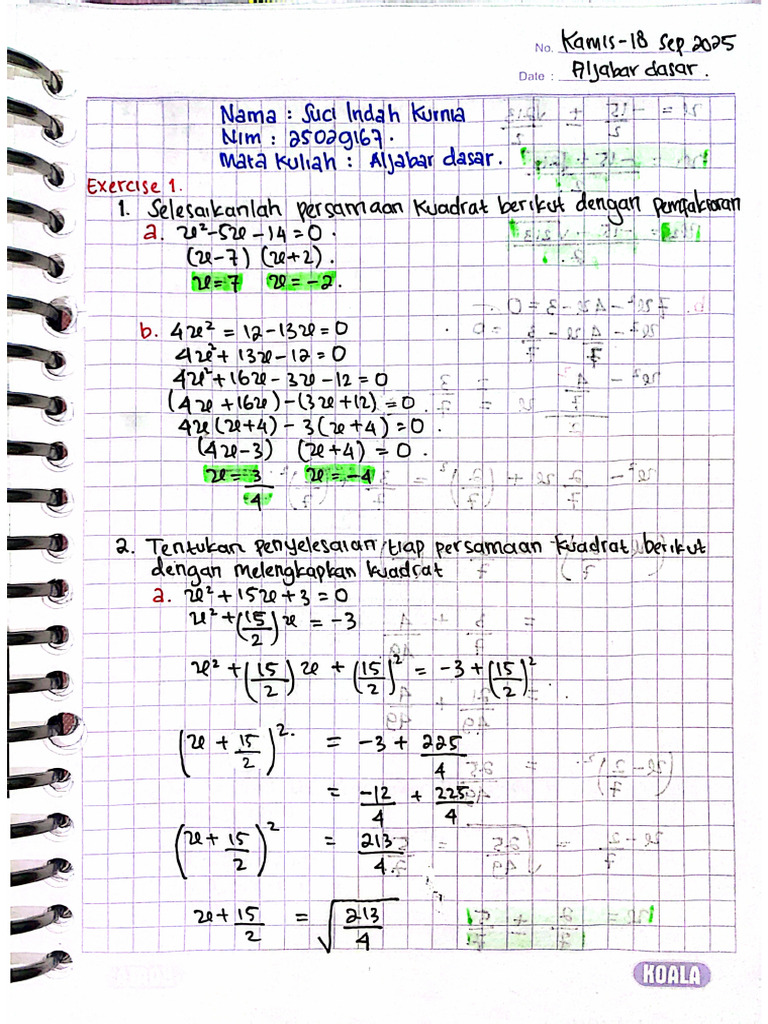 No. Kamis-18 Sep 2025
Date : Aljabar dasar.
Nama : Suci Indah Kurnia
Nim : 25029167.
Mata Kuliah : Aljabar dasar.
Exercise 1.
1. Selesaikanlah persamaan kuadrat berikut dengan pemfaktoran
a. x² - 5x - 14 = 0.
(x-7) (x+2).
x = 7 x = -2.
b. 4x² = 12 - 13x = 0
4x² + 13x - 12 = 0
4x² + 16x - 3x - 12 = 0
(4x + 16x) - (3x + 12) = 0.
4x (x+4) - 3 (x+4) = 0.
(4x-3) (x+4) = 0.
x = 3/4 x = -4
2. Tentukan penyelesaian tiap persamaan kuadrat berikut
dengan melengkapkan kuadrat
a. x² + 15x + 3 = 0
x² + (15/2) x = -3
x² + (15/2) x + (15/2)² = -3 + (15/2)²
(x + 15/2)². = -3 + 225/4
= -12/4 + 225/4
(x + 15/2)² = 213/4.
x + 15/2 = √(213/4)
KOALA